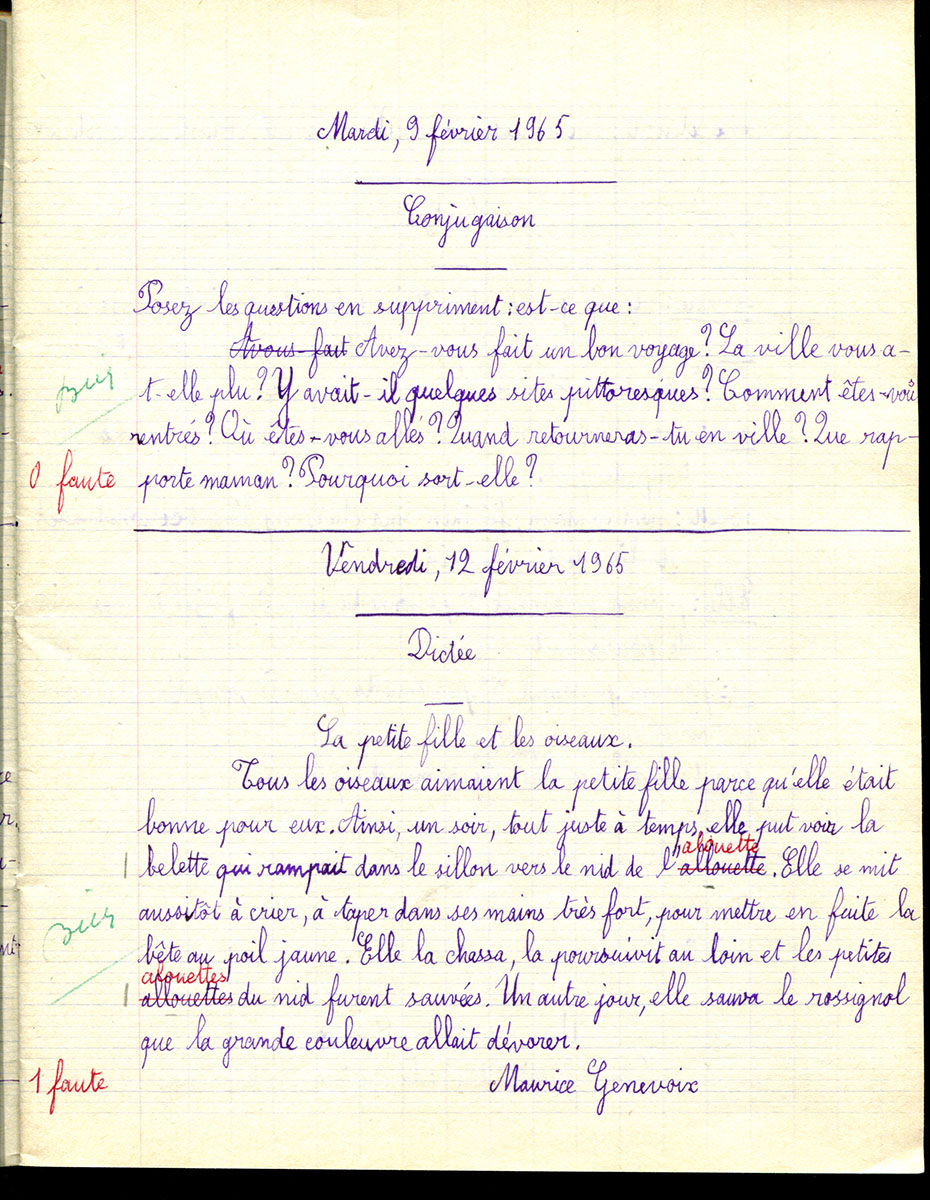 Mardi, 9 février 1965
Conjugaison
Posez les questions en suppriment : est-ce que :
Avous-fait Avez-vous fait un bon voyage ? La ville vous a-
t-elle plu ? Y avait-il quelques sites pittoresques ? Comment êtes-vous
rentrés ? Où êtes-vous allés ? Quand retourneras-tu en ville ? Que rap-
0 faute porte maman ? Pourquoi sort-elle ?
Vendredi, 12 février 1965
Dictée
La petite fille et les oiseaux.
Tous les oiseaux aimaient la petite fille parce qu'elle était
bonne pour eux. Ainsi, un soir, tout juste à temps, elle put voir la
alouette
belette qui rampait dans le sillon vers le nid de l'allouette. Elle se mit
aussitôt à crier, à taper dans ses mains très fort, pour mettre en fuite la
bête au poil jaune. Elle la chassa, la poursuivit au loin et les petites
alouettes
allouettes du nid furent sauvées. Un autre jour, elle sauva le rossignol
que la grande couleuvre allait dévorer.
1 faute
Maurice Genevoix